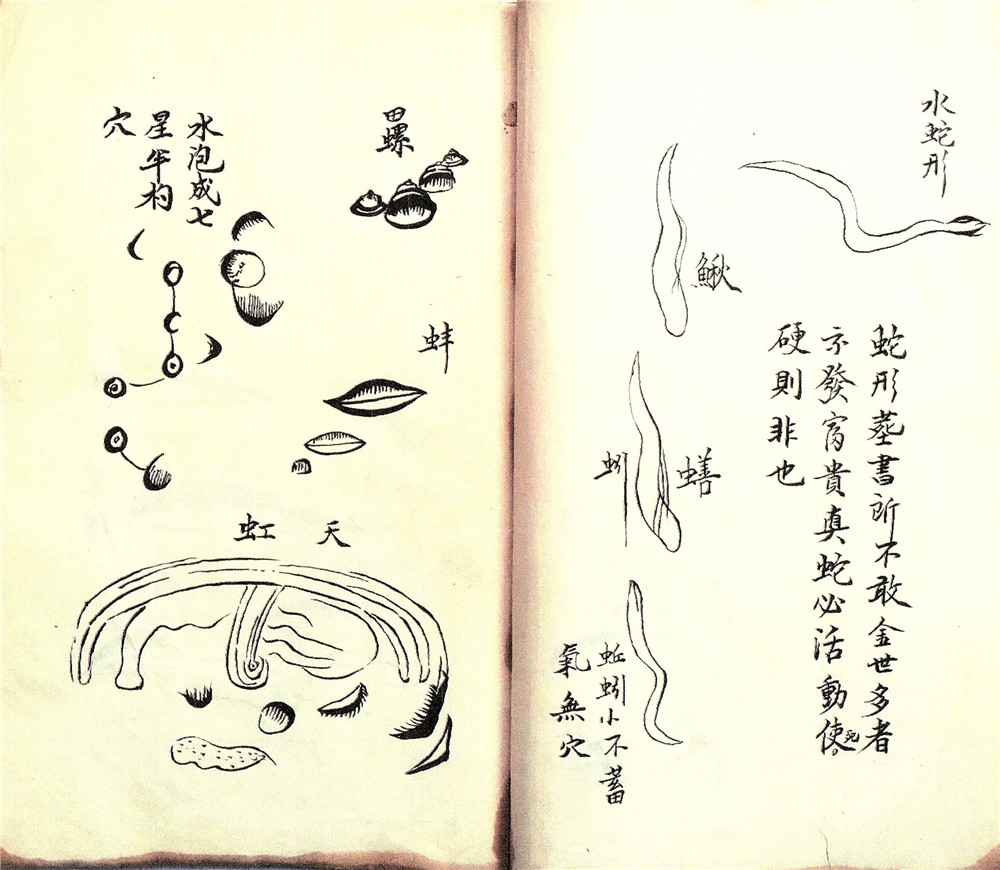 水蛇形
蛇形葬書所不敢金世多者
發富貴真蛇必活動使死
硬則非也
鰍
蟮
蚓
蚯蚓小不蓄
氣無穴
田螺
蚌
水泡成七
星杓
穴
天虹